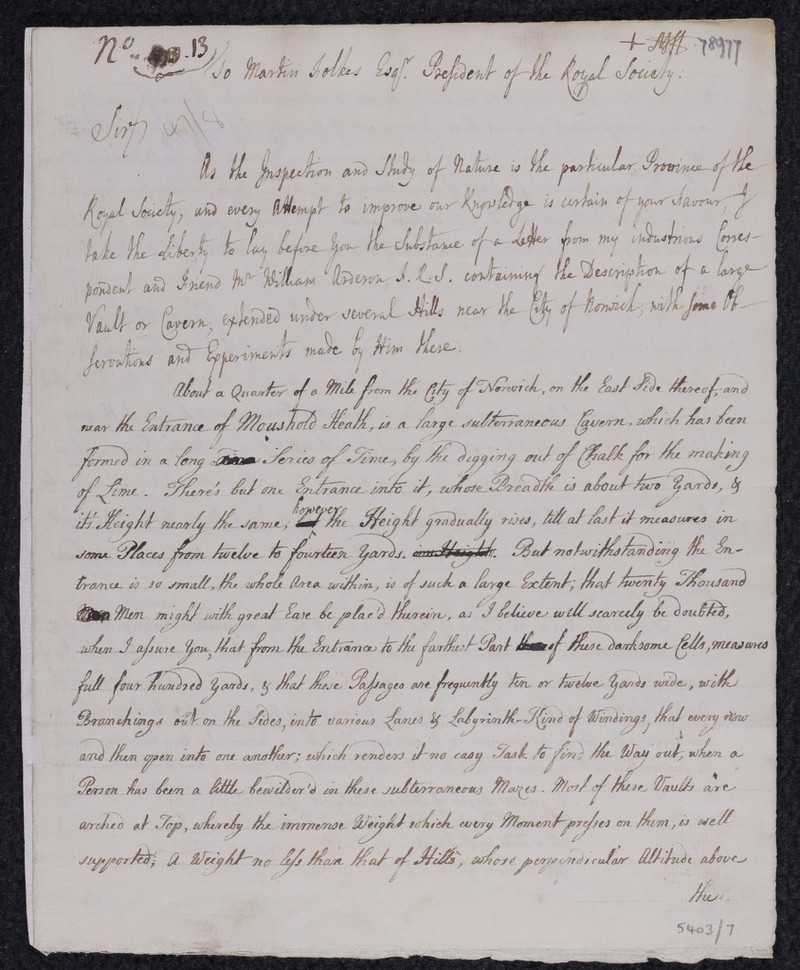 No. 13
78977
To Martin Folkes Esqr. President of the Royal Society.
Sir,
As the Inspection and Study of Nature is the particular Province of the
Royal Society, and every Attempt to improve our Knowledge is certain of your Favour, I
take the Liberty to lay before You the Substance of a Letter from my industrious Corres-
pondent and Friend Mr William Arderon, F.R.S. containing the Description of a large
Vault or Cavern, extended under several Hills near the City of Norwich, with some Ob-
servations and Experiments made by Him there.
About a Quarter of a Mile from the City of Norwich, on the East Side thereof, and
near the Entrance of Moushold Heath, is a large subterraneous Cavern, which has been
formed in a long Series of Time, by the digging out of Chalk for the making
of Lime. There's but one Entrance into it, whose Breadth is about two Yards, &
it's Height nearly the same; however the Height gradually rises, till at last it measures in
some Places from twelve to fourteen Yards. But notwithstanding the En-
trance is so small, the whole Area within, is of such a large Extent, that twenty Thousand
Men might with great Ease be plac'd therein, as I believe will scarcely be doubted,
when I assure You, that from the Entrance to the farthest Part of these darksome Cells, measures
full four hundred Yards, & that these Passages are frequently ten or twelve Yards wide, with
Branchings out on the Sides, into various Lanes & Labyrinth-Kind of Windings, that every now
and then open into one another; which renders it no easy Task to find the Way out, when a
Person has been a little bewilder'd in these subterraneous Mazes. Most of these Vaults are
arched at Top, whereby the immense Weight which every Moment presses on them, is well
supported; A Weight no less than that of Hills, whose perpendicular Altitude above
these
5403/7